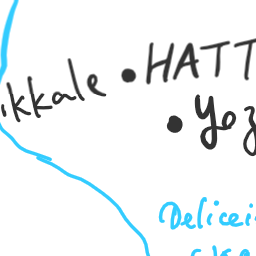 ikkale
HATT
Yoz
Delicei